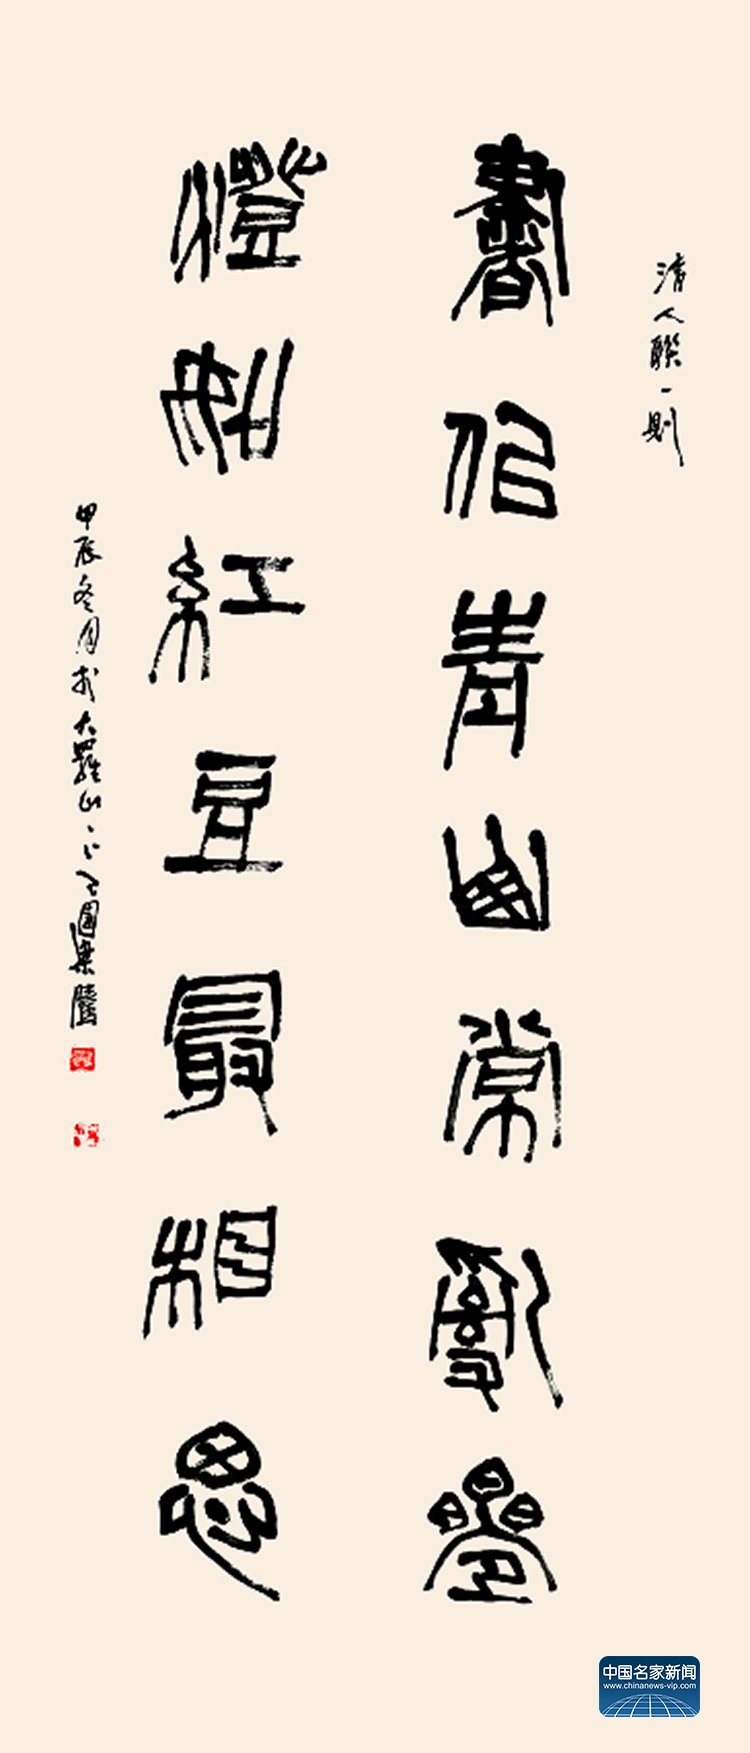 清人聯一則
書似青山常亂疊
燈如紅豆最相思
甲辰冬月於大羅山
中国名家新闻
www.chinanews-vip.com